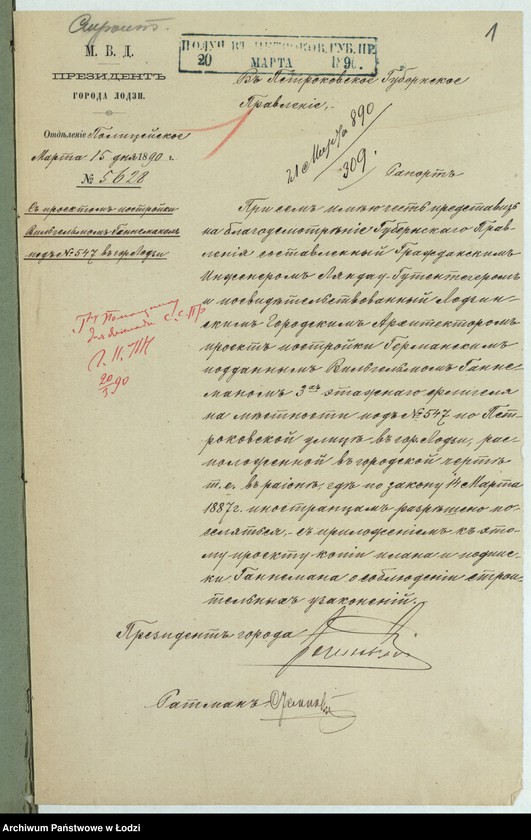 1
М. В. Д.
ПРЕЗИДЕНТЪ
ГОРОДА ЛОДЗИ.
Отдѣленіе Полицейское
Марта 15 дня 1890 г.
№ 5628
Съ проектомъ постройки
Вильгельмомъ Ганнеманомъ
подъ № 547 въ гор. Лодзи
ПОЛУЧ. ВЪ ПЕТРОКОВ. ГУБ. ПР.
20 МАРТА 1890
Въ Петроковское Губернское
Правленіе,
21 Марта 890
309.
Рапортъ
При семъ имѣю честь представить
на благоусмотрѣніе Губернскаго Прав-
ленія составленный Гражданскимъ
Инженеромъ Ляндау-Гутентегеромъ
и посвидѣтельствованный Лодзин-
скимъ Городскимъ Архитекторомъ
проектъ постройки Германскимъ
подданнымъ Вильгельмомъ Ганне-
маномъ 3хъ этажнаго флигеля
на мѣстности подъ № 547 по Пет-
роковской улицѣ въ гор. Лодзи, рас-
положенной въ городской чертѣ
т. е. въ районѣ, гдѣ по закону 14 Марта
1887 г. иностранцамъ разрѣшено по-
селяться, - съ приложеніемъ къ это-
му проекту копіи плана и подпис-
ки Ганнемана о соблюденіи строи-
тельныхъ узаконеній.
20/3 90
Президентъ города
Ратманъ
Archiwum Państwowe w Łodzi